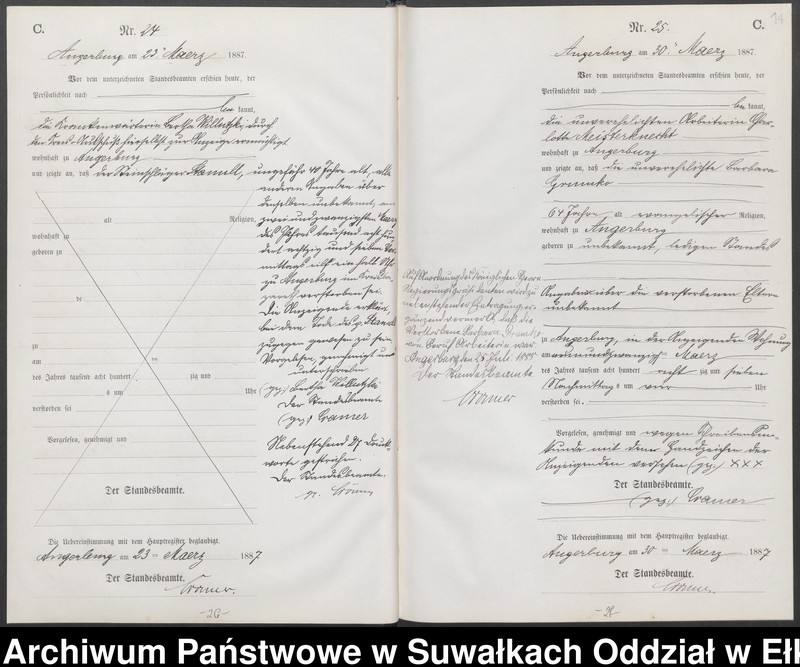 C.
Nr. 24
Angerburg am 23ten Maerz 1887.
Vor dem unterzeichneten Standesbeamten erschien heute, der
Persönlichkeit nach
be kannt,
die Krankenwärterin Bertha
zur Anzeige ermächtigt
wohnhaft zu Angerburg
und zeigte an, daß der Steinschläger ungefähr 40 Jahre alt, alle
anderen Angaben über
denselben unbekannt, am
zwei und zwanzigsten Maerz
des Jahres tausend acht hun-
dert achtzig und sieben Vor-
mittags elf ein halb Uhr
zu Angerburg im Kranken-
verstorben sei.
Die Anzeigende erklärt,
bei dem Tode des p.
zugegen gewesen zu sein
Vorgelesen, genehmigt und
unterschrieben
(gez.) Bertha
Der Standesbeamte
(gez.) Cramer
Nebenstehend 27 Druck-
worte gestrichen.
Der Standesbeamte.
gez. Cramer
alt Religion,
wohnhaft zu
geboren zu
zu
am ten
des Jahres tausend acht hundert zig und
s um Uhr
verstorben sei
Vorgelesen, genehmigt und
Der Standesbeamte.
Die Uebereinstimmung mit dem Hauptregister beglaubigt.
Angerburg am 23ten Maerz 1887
Der Standesbeamte.
Cramer.
-26-
Nr. 25.
C.
Angerburg am 30ten Maerz 1887.
Vor dem unterzeichneten Standesbeamten erschien heute, der
Persönlichkeit nach
be kannt,
die unverehelichten Arbeiterin Char-
lotte Meisterknecht
wohnhaft zu Angerburg
und zeigte an, daß die unverehelichte Barbara
64 Jahre alt evangelischer Religion,
wohnhaft zu Angerburg
geboren zu unbekannt, ledigen Standes
Angaben über die verstorbenen Eltern
unbekannt
zu Angerburg, in der Anzeigenden Wohnung
am Maerz
des Jahres tausend acht hundert acht zig und sieben
Nachmittag s um vier Uhr
verstorben sei.
Vorgelesen, genehmigt und wegen Schreibensun-
kunde mit dem Handzeichen der
Anzeigenden versehen (gez.) XXX
Der Standesbeamte.
(gez.) Cramer
Die Uebereinstimmung mit dem Hauptregister beglaubigt.
Angerburg am 30ten Maerz 1887
Der Standesbeamte.
Cramer.
Auf Anordnung des königlichen Herrn
Regierungspräsidenten wird zu
Eintragung er-
gänzend vermerkt, daß die
Verstorbene Barbara
von Beruf Arbeiterin war.
Angerburg den 25 Juli
Der Standesbeamte
Cramer
Archiwum Państwowe w Suwałkach Oddział w Ełk